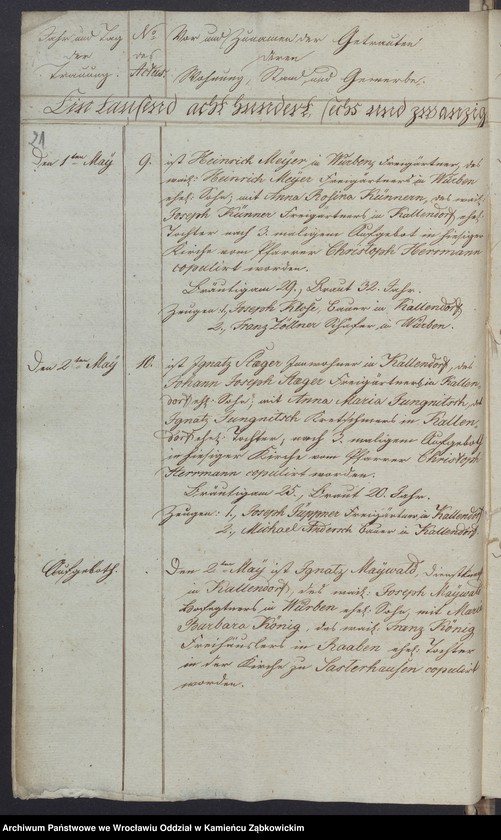 Jahr und Tag
der
Trauung.
No
des
Actus.
Vor und Zunamen der Getrauten
deren
Wohnung, Stand, und Gewerbe.
Ein tausend acht hundert, sechs und zwanzig
21
Den 1ten May
9.
ist Heinrich Meyer in Würben, Freigärtner, des
weil. Heinrich Meyer Freigärtners in Würben
ehel. Sohn; mit Anna Rosina Künnern, des weil.
Joseph Künner Freigärtners in Kallendorf, ehel.
Tochter nach 3. maligem Aufgebot in hiesiger
Kirche vom Pfarrer Christoph Herrmann
copulirt worden.
Bräutigam 29., Braut 32. Jahr.
Zeugen 1, Joseph Klose, Bauer in Kallendorf
2., Franz Zöllner Schafer in Würben.
Den 2ten May
10.
ist Ignatz Inwohner in Kallendorf, des
Johann Joseph Freigärtners in Kallen-
dorf ehl. Sohn; mit Anna Maria Jungnitsch, des
Ignatz Jungnitsch Kretschmers in Kallen-
dorf ehel. Tochter, nach 3. maligem Aufgeboth
in hiesiger Kirche vom Pfarrer Christoph
Herrmann copulirt worden.
Bräutigam 25., Braut 20. Jahr.
Zeugen: 1., Joseph Freigärtner in Kallendorf
2., Michael Anders Bauer in Kallendorf.
Aufgeboth.
Den 2ten May ist Ignatz Maywald, Dienstknecht
in Kallendorf, des weil. Joseph Maywald
in Würben ehel. Sohn, mit Maria
Barbara König, des weil. Franz König
Freihäuslers in Raaben ehel. Tochter
in der Kirche zu Sasterhausen copulirt
worden.
Archiwum Państwowe we Wrocławiu Oddział w Kamieńcu Ząbkowickim